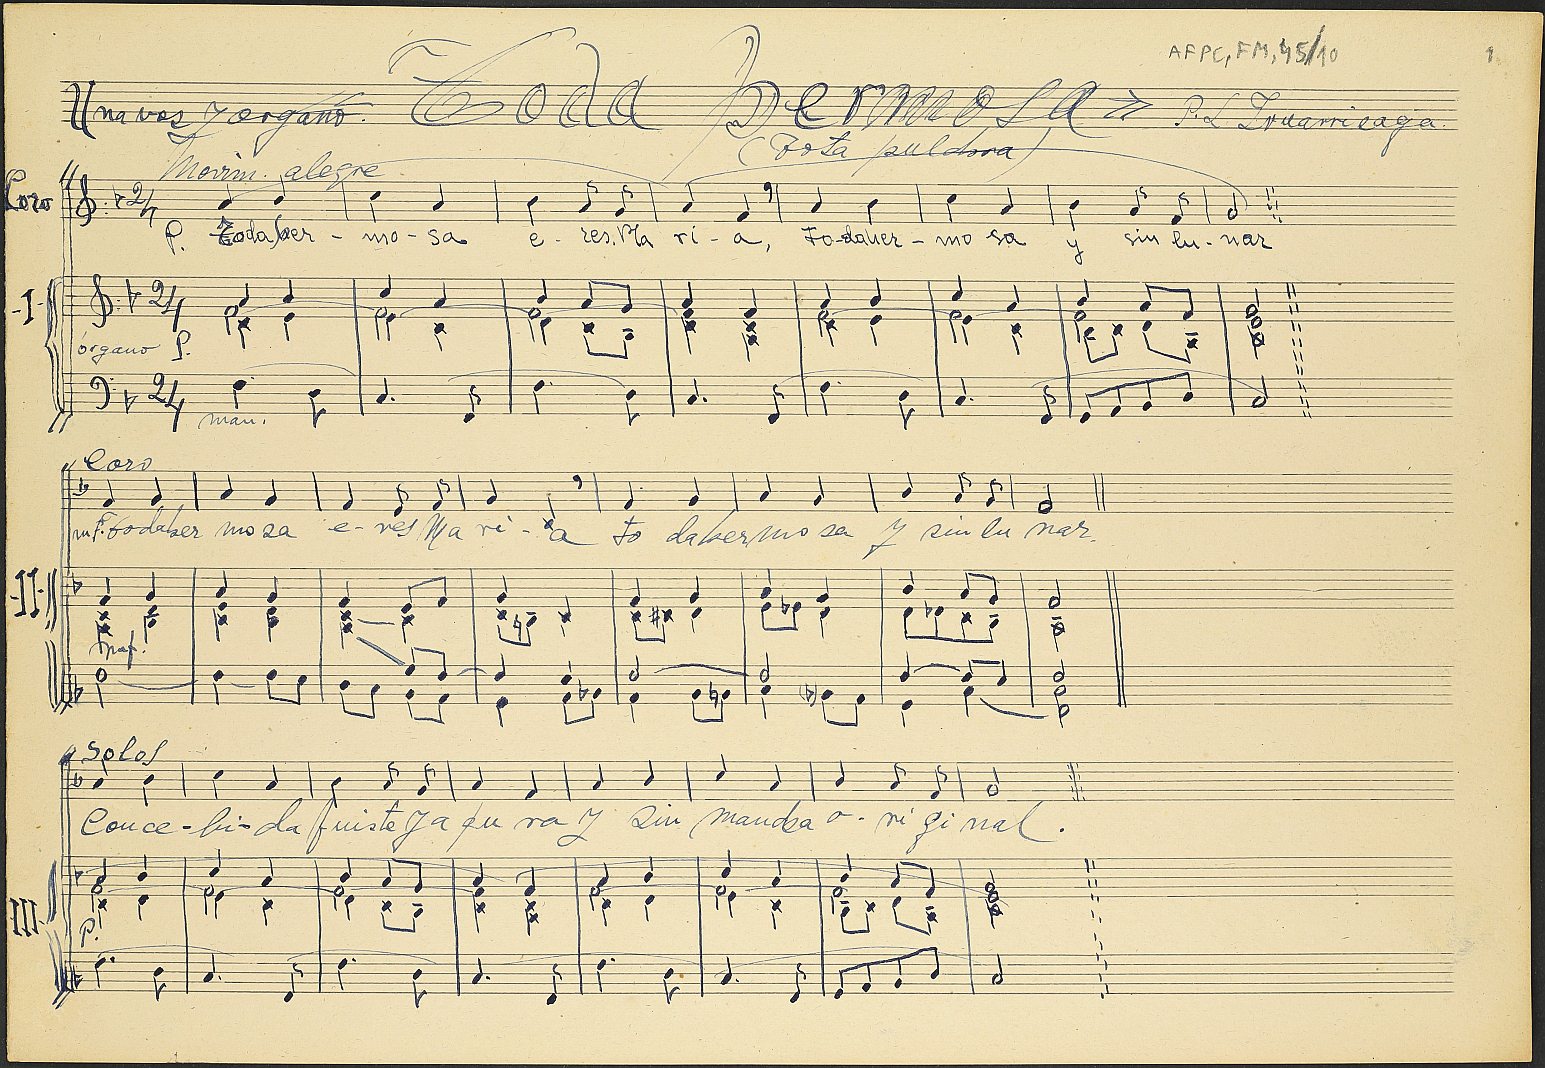 AFPC, FM, 45/10 1.
Una voz y organo. Toda hermosa P. L. Iruarrizaga
(Tota pulchra)
Movim. alegre
Coro
p. Toda her - mo - sa e - res Ma ri - a, To-da her - mo sa y sin lu - nar
-I-
órgano p.
man.
Coro
mf. Toda her mo sa e - res Ma ri - a To da her mo sa y sin lu nar.
-II-
mf.
Solos
Conce - bi - da fuiste ya pu ra y sin mancha o - ri gi nal.
III-
p.